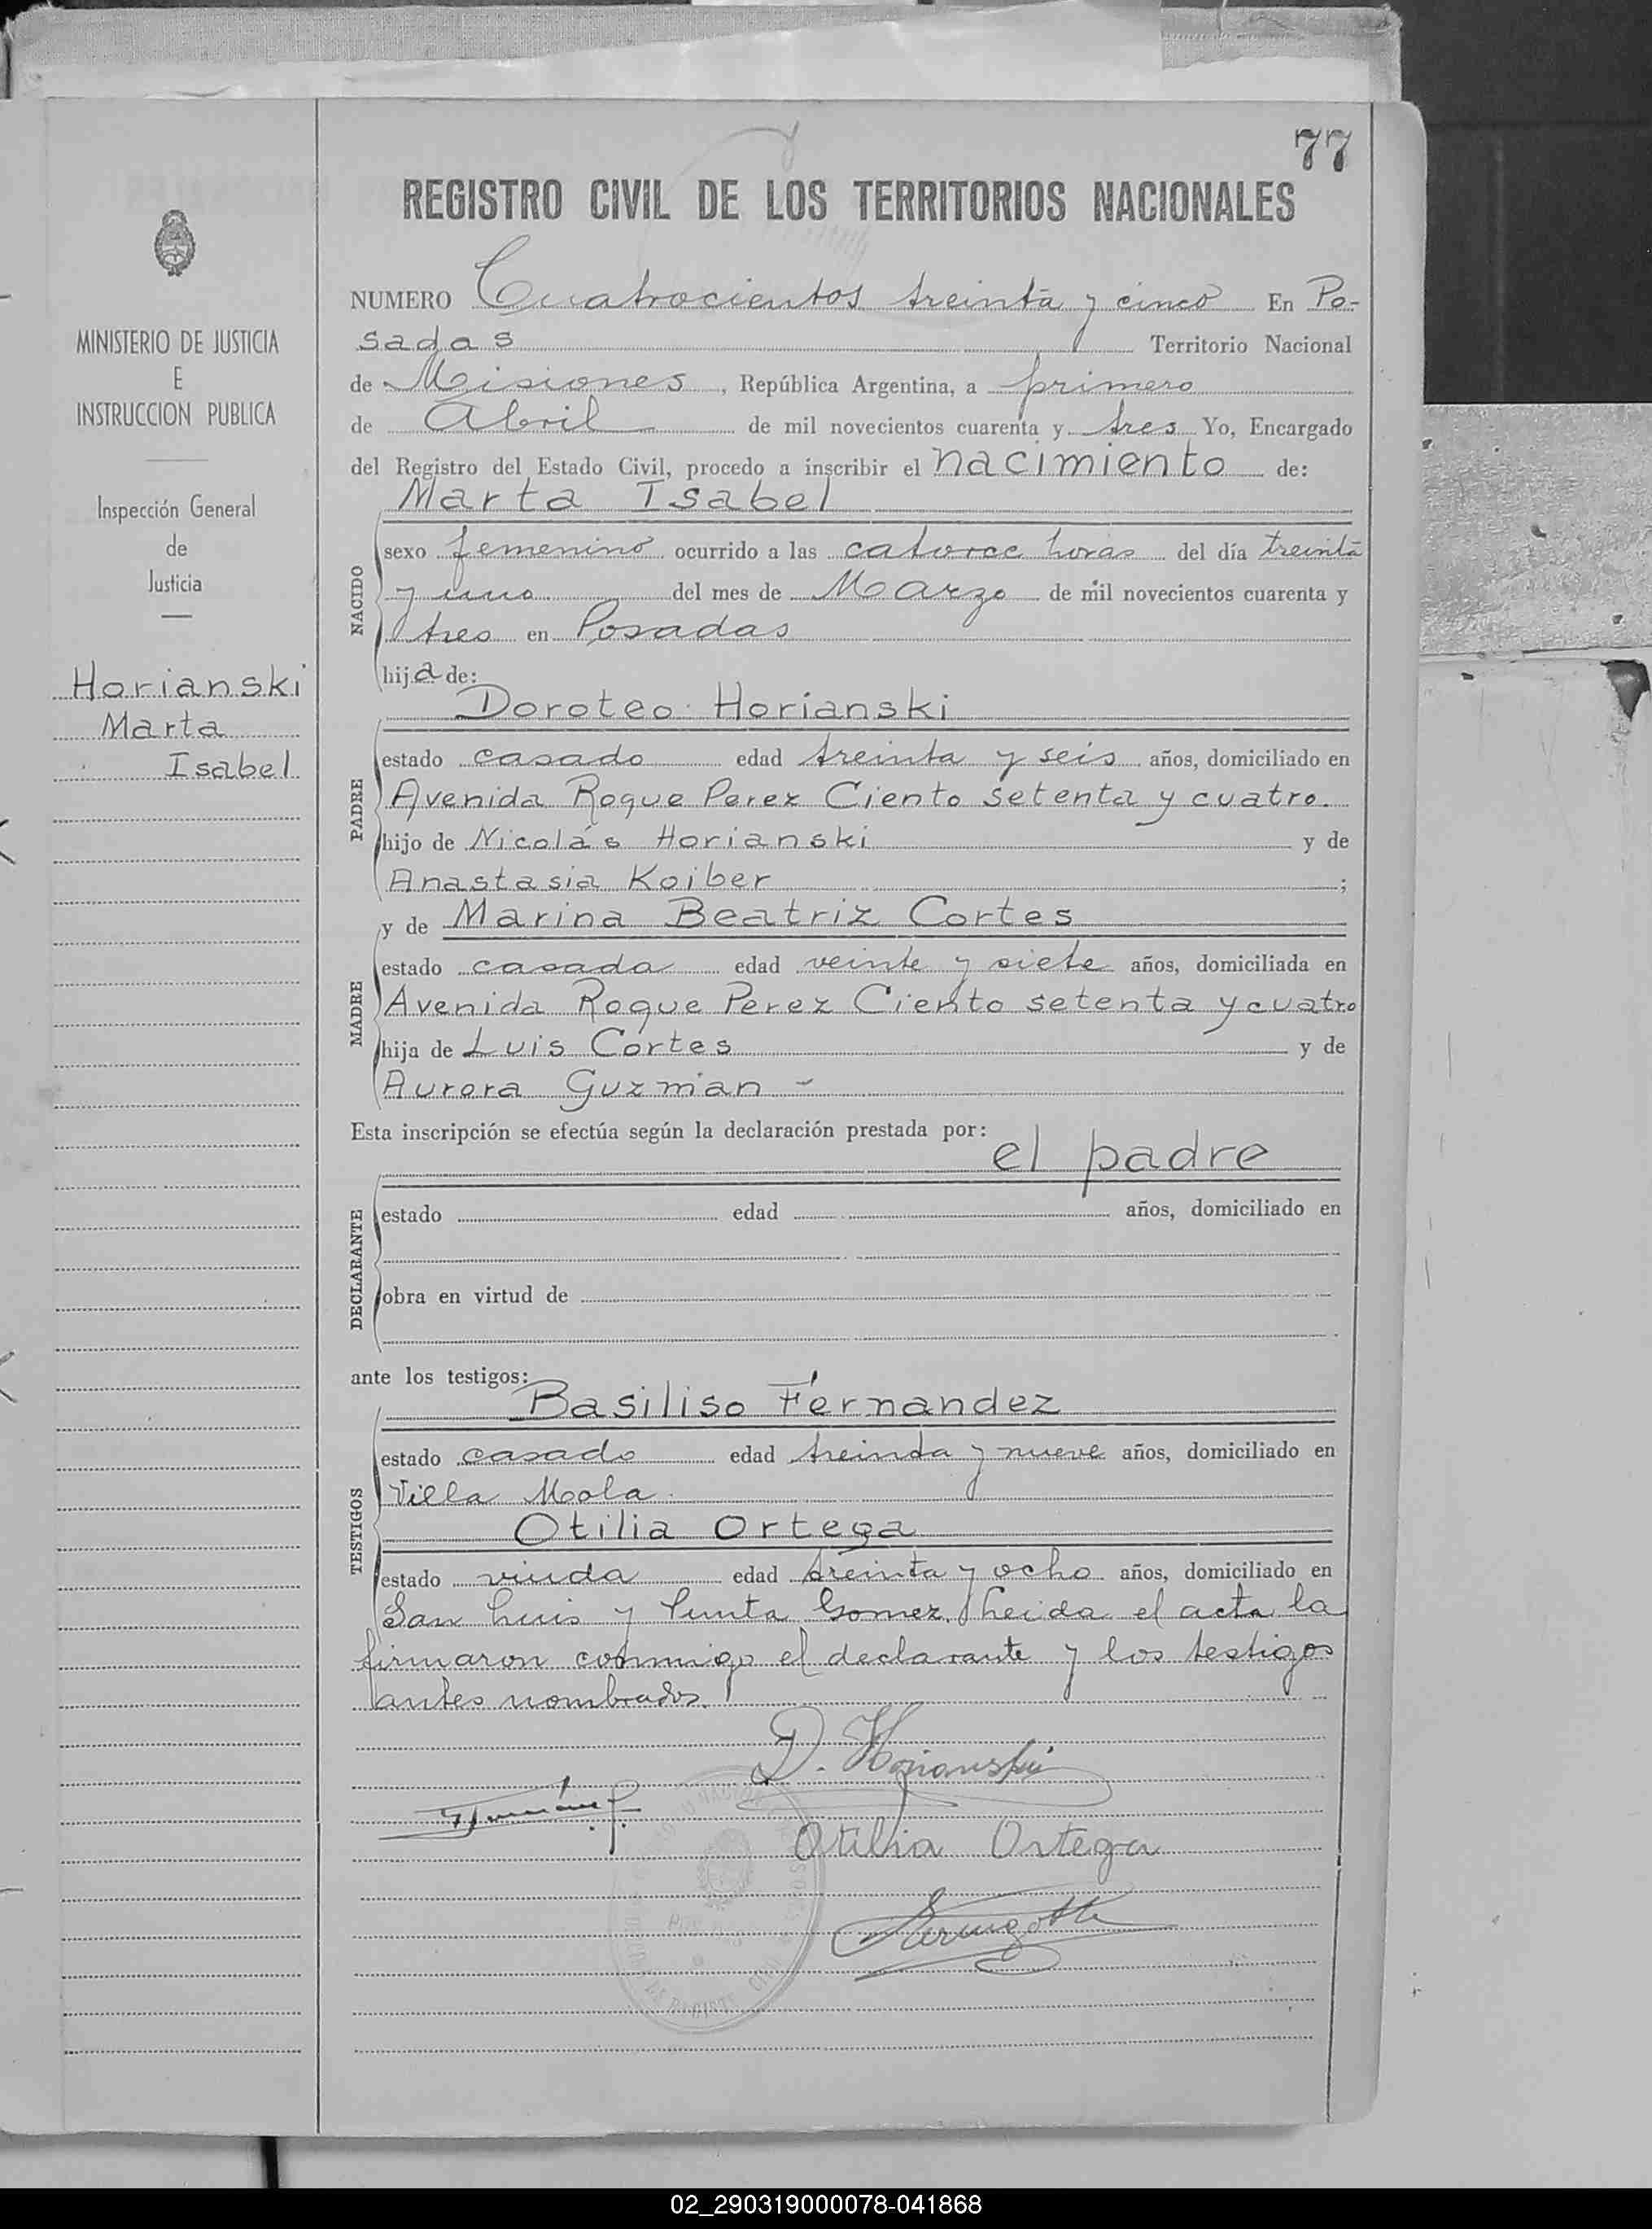 77
REGISTRO CIVIL DE LOS TERRITORIOS NACIONALES
MINISTERIO DE JUSTICIA
E
INSTRUCCION PUBLICA
Inspección General
de
Justicia
Horianski
Marta
Isabel
NUMERO Cuatrocientos treinta y cinco En Po-
sadas Territorio Nacional
de Misiones, República Argentina, a primero
de Abril de mil novecientos cuarenta y tres Yo, Encargado
del Registro del Estado Civil, procedo a inscribir el nacimiento de:
Marta Isabel
NACIDO
sexo femenino ocurrido a las catorce horas del día treinta
y uno del mes de Marzo de mil novecientos cuarenta y
tres en Posadas
hija de:
Doroteo Horianski
PADRE
estado casado edad treinta y seis años, domiciliado en
Avenida Roque Perez Ciento setenta y cuatro.
hijo de Nicolás Horianski y de
Anastasia Koiber ;
y de Marina Beatriz Cortes
MADRE
estado casada edad veinte y siete años, domiciliada en
Avenida Roque Perez Ciento setenta y cuatro
hija de Luis Cortes y de
Aurora Guzman -
Esta inscripción se efectúa según la declaración prestada por:
el padre
DECLARANTE
estado edad años, domiciliado en
obra en virtud de
ante los testigos:
Basiliso Fernandez
TESTIGOS
estado casado edad treinta y nueve años, domiciliado en
Villa Mola
Otilia Ortega
estado viuda edad treinta y ocho años, domiciliado en
San Luis y Punta Gomez. Leida el acta la
firmaron conmigo el declarante y los testigos
antes nombrados.
D. Horianski
Otilia Ortega
02_290319000078-041868